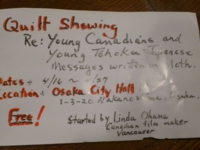 Quilt Showing
Re: Young Canadians and
Young Tohoku Japanese
Messages written on cloth.
Dates: 4/16 ~ /27
Location: Osaka City Hall
1-3-20 Nakano
Free!
started by Linda Ohama
Canadian film maker
Vancouver